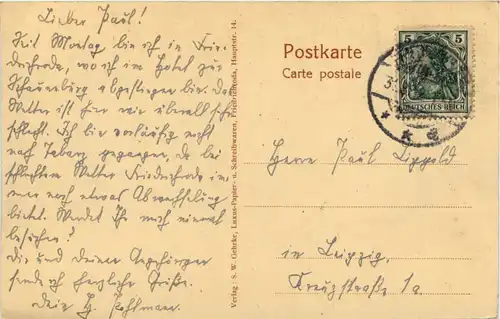 Lieber Paul!
Seit Montag bin ich in Frie-
drichroda, wo ich im Hotel zur
Schauenburg abgestiegen bin. Das
Wetter ist hier wie überall sehr
schlecht. Ich bin vorläufig nicht
nach Tabarz gegangen, da bei
schlechtem Wetter Friedrichroda im-
mer noch etwas Abwechselung
bietet. Werdet Ihr mich einmal
besuchen?
Dir und Deinen Angehörigen
sende ich herzliche Grüße.
Dein H. Pohlmann.
Verlag: S. W. Gehrke, Luxus-Papier- u. Schreibwaren, Friedrichroda, Hauptstr. 14.
Postkarte
Carte postale
5 5
DEUTSCHES REICH
Herrn Paul Lippold
in Leipzig.
Kreuzstraße 1a.